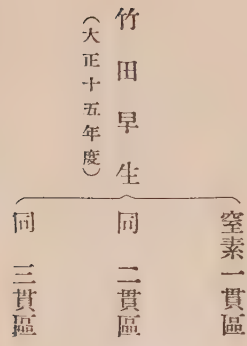 竹田早生
(大正十五年度)
窒素一貫區
同 二貫區
同 三貫區